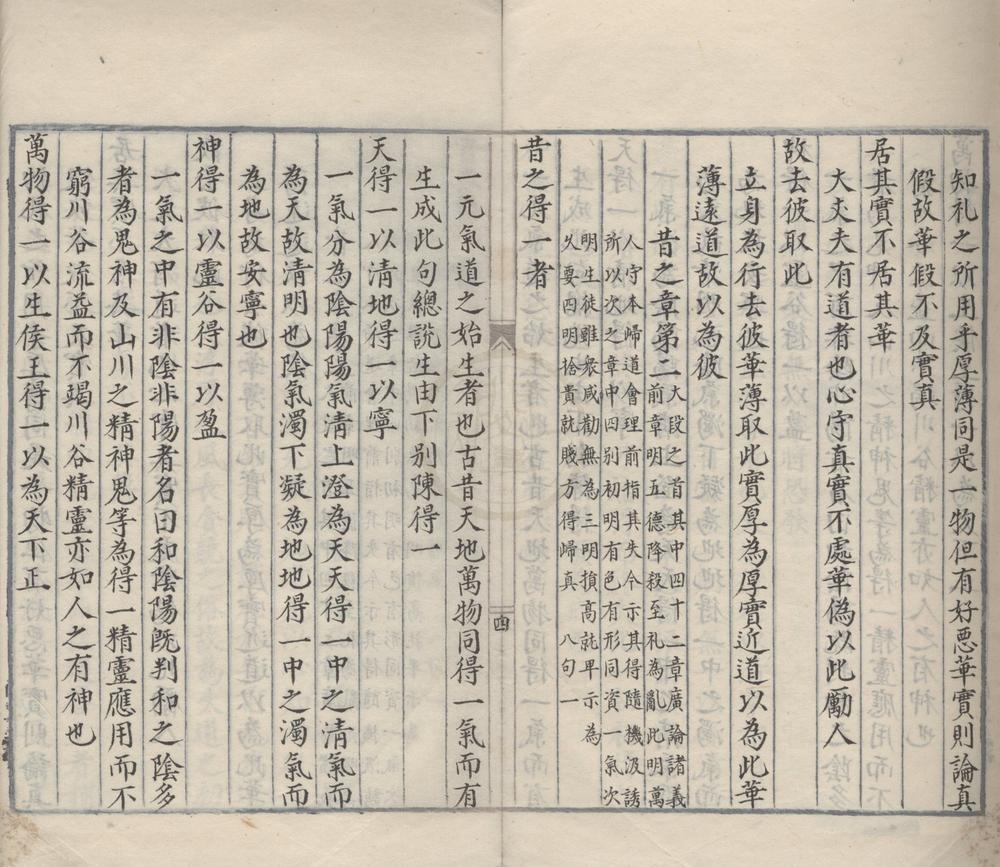 知礼之所用乎厚薄同是一物但有好惡華實則論真
假故華假不及實真
居其實不居其華
大丈夫有道者也心守真實不處華偽以此勵人
故去彼取此
立身為行去彼華薄取此實厚為厚實近道以為此華
薄遠道故以為彼
昔之章第二
大段之首其中四十二章廣論諸義
前章明五德降殺至礼為亂此明萬
人守本歸道會理前指其失今示其得隨機汲誘
所以次之章中四別初明有色有形同資一氣次
明生徒雖衆咸勸無為三明損高就卑示為
乆要四明捨貴就賤方得歸真 八句一
昔之得一者
一元氣道之始生者也古昔天地萬物同得一氣而有
生成此句總說生由下別陳得一
天得一以清地得一以寧
一氣分為陰陽陽氣清上澄為天天得一中之清氣而
為天故清明也陰氣濁下凝為地地得一中之濁氣而
為地故安寧也
神得一以靈谷得一以盈
一氣之中有非陰非陽者名曰和陰陽既判和之陰多
者為鬼神及山川之精神鬼等為得一精靈應用而不
窮川谷流益而不竭川谷精靈亦如人之有神也
萬物得一以生侯王得一以為天下正
四